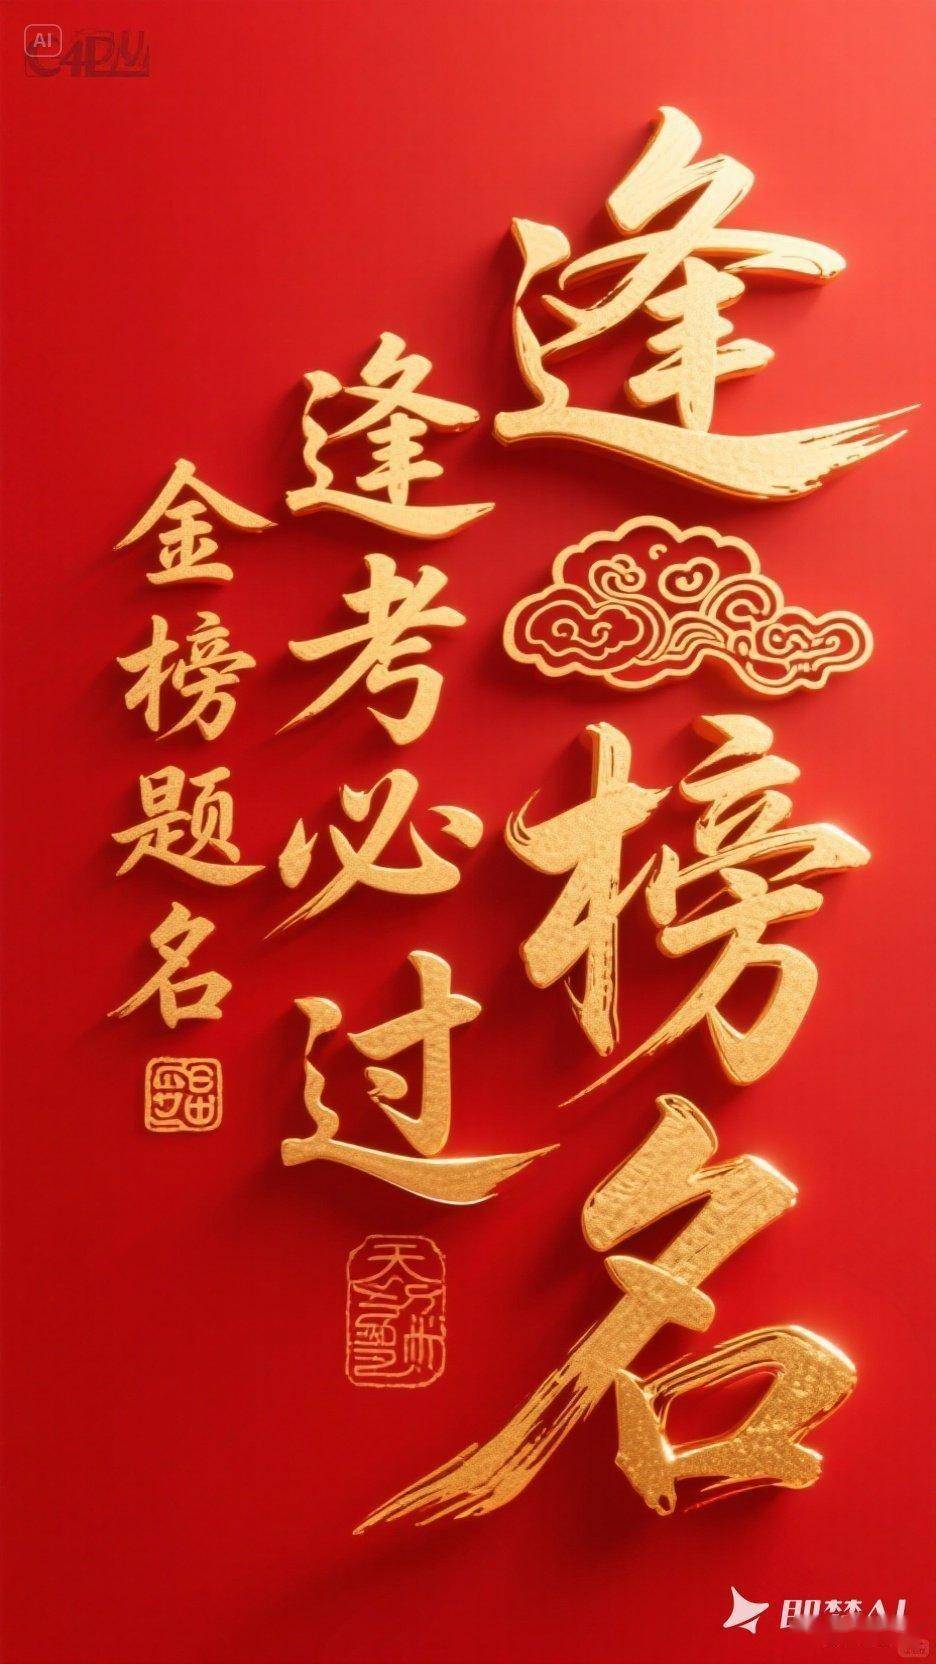 逢榜名
逢考必过
金榜题名
AI
即梦AI